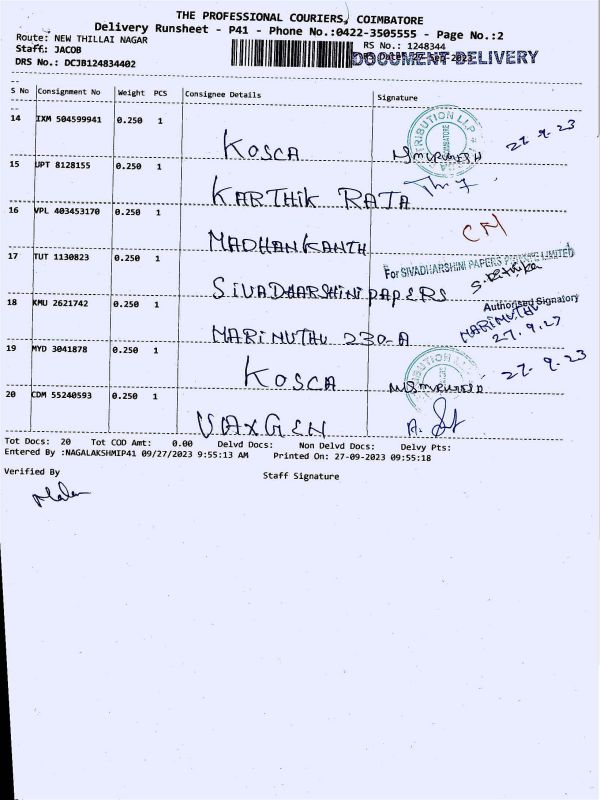 THE PROFESSIONAL COURIERS, COIMBATORE
Delivery Runsheet - P41 - Phone No.:0422-3505555 - Page No.:2
Route: NEW THILLAI NAGAR
RS No.: 1248344
Staff: JACOB
DOCUMENT DELIVERY
DRS No.: DCJB124834402
S No Consignment No Weight PCS Consignee Details Signature
14 IXM 504599941 0.250 1
KOSCA 27.9.23
15 UPT 8128155 0.250 1
KARTHIK RAJA
16 VPL 403453170 0.250 1
MADHANKANTH CM
17 TUT 1130823 0.250 1
For SIVADHARSHINI PAPERS PRIVATE LIMITED
SIVADHARSHINI PAPERS
Authorised Signatory
18 KMU 2621742 0.250 1
MARIMUTHU 230-A MARIMUTHU 27.9.23
19 MYD 3041878 0.250 1
KOSCA 27.9.23
20 CDM 55240593 0.250 1
VAXGEN
Tot Docs: 20 Tot COD Amt: 0.00 Delvd Docs: Non Delvd Docs: Delvy Pts:
Entered By :NAGALAKSHMIP41 09/27/2023 9:55:13 AM Printed On: 27-09-2023 09:55:18
Verified By
Staff Signature